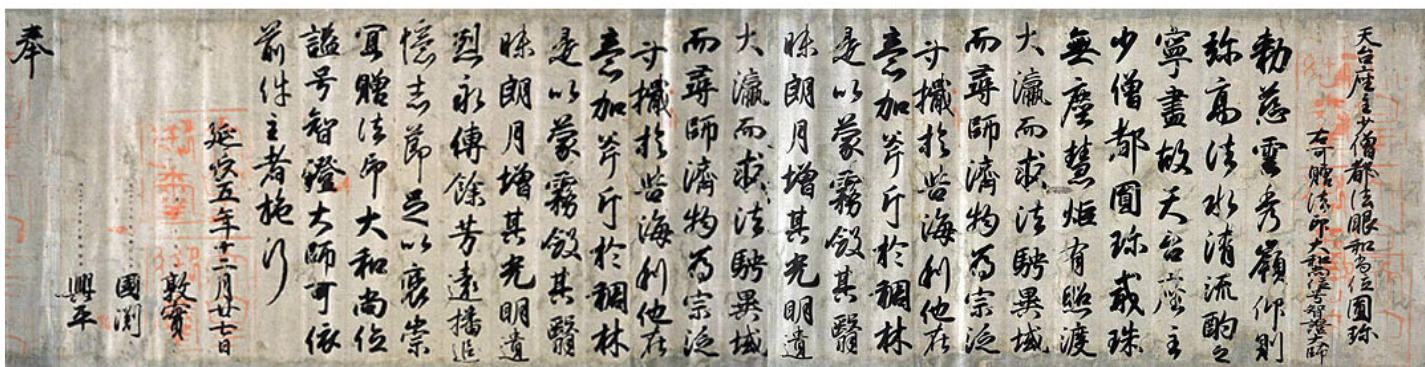 天台座主少僧都法眼和尚位圓珎
右可贈法印大和尚位号智證大師
勅慈雲秀嶺仰則
弥高法水清流酌之
寧盡故天台座主
少僧都圓珎戒珠
無塵慧炬有照渡
大瀛而求法騁異域
而尋師濟物為宗泛
舟檝於苦海利他在
意加斧斤於稠林
是以蒙霧斂其翳
昧朗月增其光明遺
大瀛而求法騁異域
而尋師濟物為宗泛
舟檝於苦海利他在
意加斧斤於稠林
是以蒙霧斂其翳
昧朗月增其光明遺
烈永傳餘芳遠播追
憶志節足以褒崇
宜贈法印大和尚位
諡号智證大師可依
前件主者施行
延長五年十二月廿七日
敦實
國淵
興平
奉